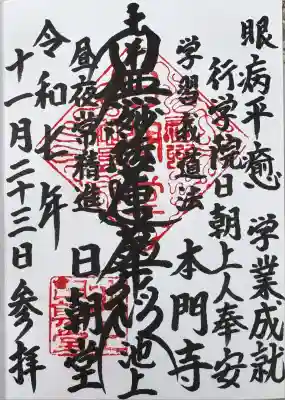 眼病平癒 学業成就
行学院日朝上人奉安
学習義道法 本門寺
池上
南無妙法蓮華経
昼夜常精進 日朝堂
令和七年
十一月二十三日参拝